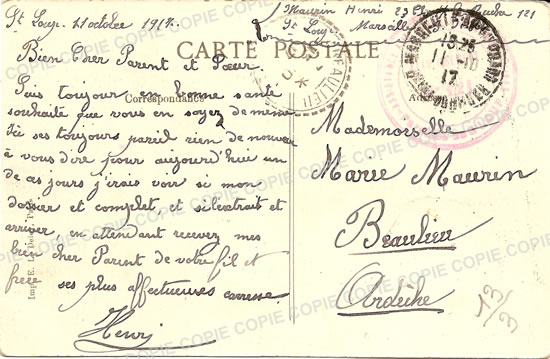 St Loup. 11 octobre 1917.
Maurin Henri 23
St Loup Marseille
CARTE POSTALE
Bien Cher Parent et Sœur.
Suis toujour en bonne santé
souhaite que vous en soyez de même
ici ses toujours pareil rien de nouveau
à vous dire pour aujourd'hui un
de ces jours j'irais voir si mon
dossier et complet, et si l'extrait et
arriver, en attendant recevez mes
bien cher Parent de votre fil et
frère ses plus affectueuses caresse
Henri
Correspondance
Mademoiselle
Marie Maurin
Beaulieu
Ardèche
13-25
11-10
17
13/3
COPIE COPIE COPIE COPIE COPIE COPIE